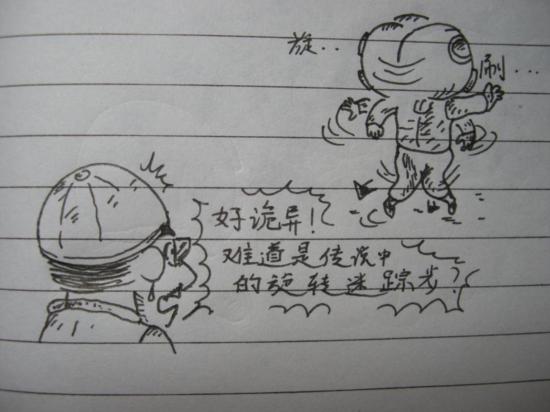 旋..
刷...
好诡异!
难道是传说中
的旋转迷踪步?